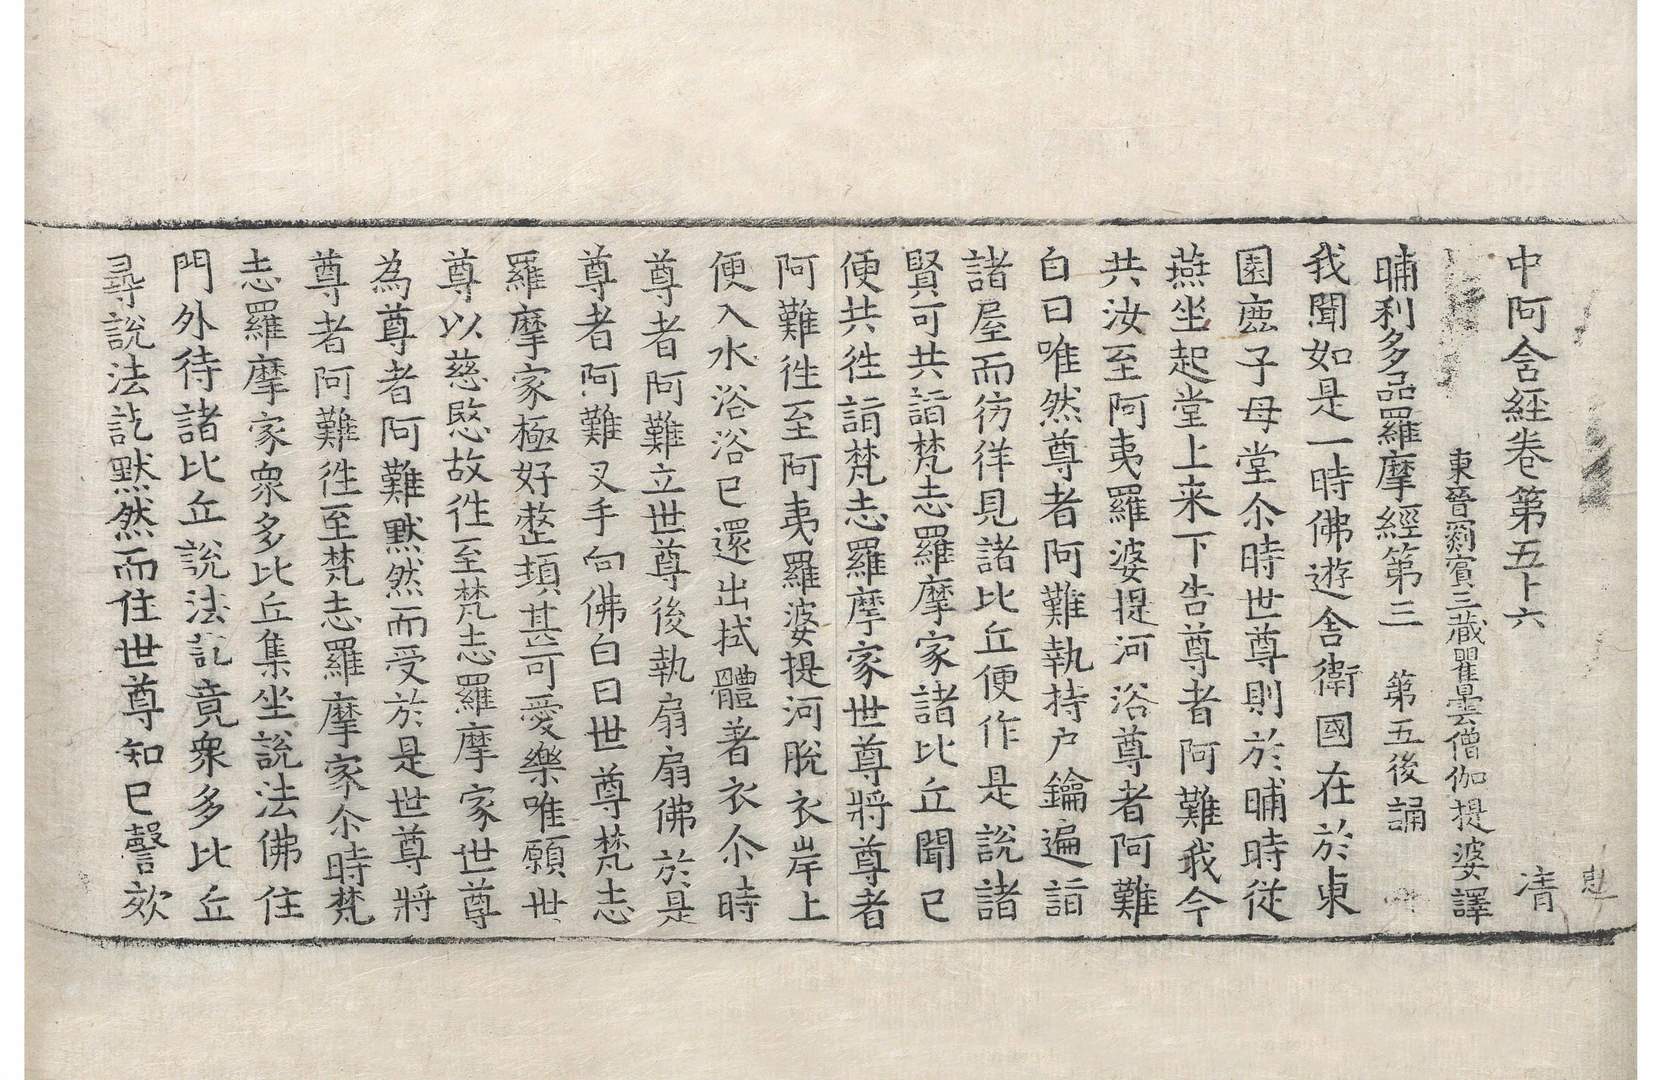 中阿含經卷第五十六 清
東晉罽賓三藏瞿曇僧伽提婆譯
晡利多品羅摩經第三 第五後誦
我聞如是一時佛遊舍衛國在於東
園鹿子母堂尒時世尊則於晡時從
燕坐起堂上来下告尊者阿難我今
共汝至阿夷羅婆提河浴尊者阿難
白曰唯然尊者阿難執持户鑰遍詣
諸屋而彷徉見諸比丘便作是說諸
賢可共詣梵志羅摩家諸比丘聞已
便共徃詣梵志羅摩家世尊將尊者
阿難徃至阿夷羅婆提河脫衣岸上
便入水浴浴已還出拭體著衣尒時
尊者阿難立世尊後執扇扇佛於是
尊者阿難叉手向佛白曰世尊梵志
羅摩家極好整頓甚可愛樂唯願世
尊以慈愍故徃至梵志羅摩家世尊
為尊者阿難默然而受於是世尊將
尊者阿難徃至梵志羅摩家尒時梵
志羅摩家衆多比丘集坐說法佛住
門外待諸比丘說法訖竟衆多比丘
尋說法訖默然而住世尊知已謦欬